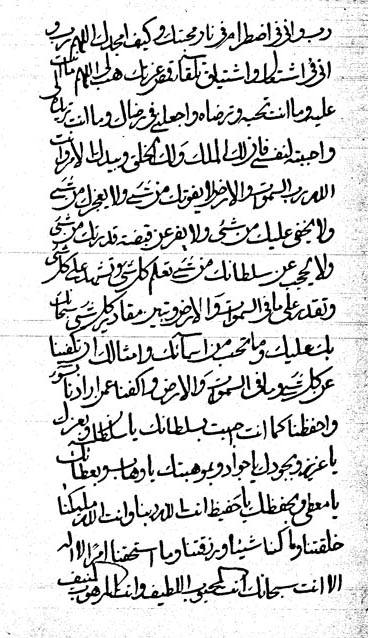 رب واني في اضطرام في نار محبتك وكيف امجدك اللهم رب و
اني في اشتعال واشتياق تلقاء قرعزتك هب لي اللهم ما انت
عليه وما انت تحبه وترضاه واجعلني في رضاك وما انت تريد
واحببته لنفسي فان لك الملك ولك الخلق وبيدك الامر وانت
الله رب السموات والارض لا يفوتك من شيء ولا يعجزك من شيء
ولا يخفى عليك من شيء ولا يفر عن قبضة قدرتك من شيء
ولا يحجب عن سلطانك من شيء تعلم كل شيء وتشهد على كل شيء
وتقدر على ما في السموات والارض وتدبر مقادير كل شيء سبحانك
بك عليك وما تحب من اسمائك وامثالك ان تكفينا
عن كل شيء وما في السموات والارض واكفنا عمن ارادنا بسوء
واحفظنا كما انت احببت بسلطانك يا سلطان وبعزك
يا عزيز وبجودك يا جواد وبموهبتك يا وهاب وبعطائك
يا معطي وبحفظك يا حفيظ انت الله ربنا وانت الله مليكنا
خلقتنا وما كنا شيئا ورزقتنا وما استحقنا امرا لا اله
الا انت سبحانك انت المحبوب اللطيف وانت المرهوب المنيف